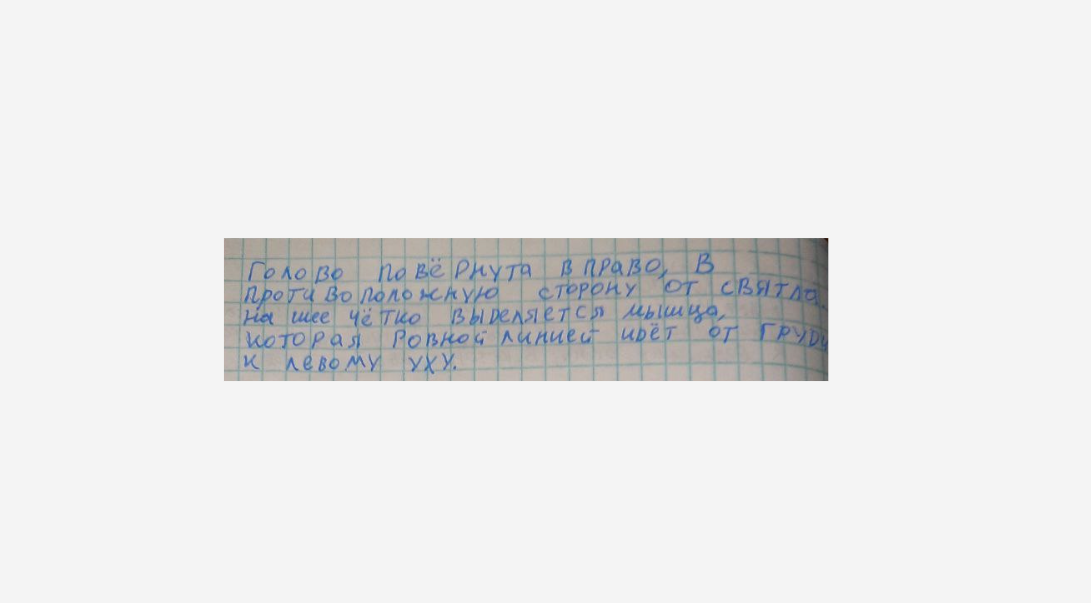 Голово повёрнута вправо, в
противоположную сторону от святла.
на шее чётко выделяется мышца,
которая ровной линией идёт от груди
к левому уху.